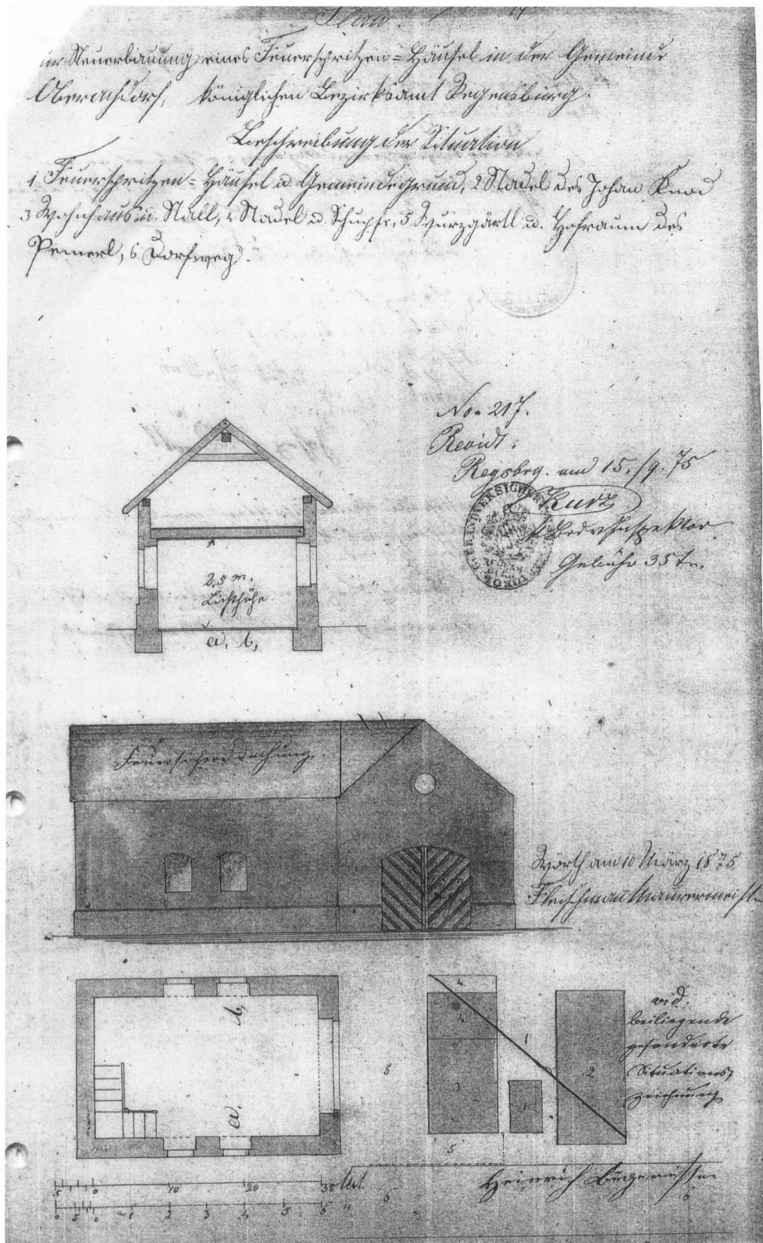 Plan.
zur Neuerbauung eines Feuerspritzen=Häusel in der Gemeinde
Oberachdorf, königlichen Bezirksamt Regensburg.
Beschreibung der Situation
1, Feuerspritzen=Häusel u. Gemeindegrund, 2 Stadel des Johan Knod
3 Wohnhaus u. Stall, 4 Stadel u. Schupfe, 5 Wurzgärtl u. Hofraum des
Pemerl, 6 Dorfweg.
No. 217.
Revidt:
Regsbrg. am 15./9. 75
Kurz
Gebühr 35 kr.
2,5 m.
Lichthöhe
a. b,
Feuersichere Dachung
Wörth am 10 März 1875
Fleischman Maurermeister
b,
a.
4
4
3
5
1
1
2
5
6
vid.
beiliegende
gesonderte
Situations
zeichnung
5 0 10 20 30 Met.
0 1 2 3 4 5 6 "
Heinrich